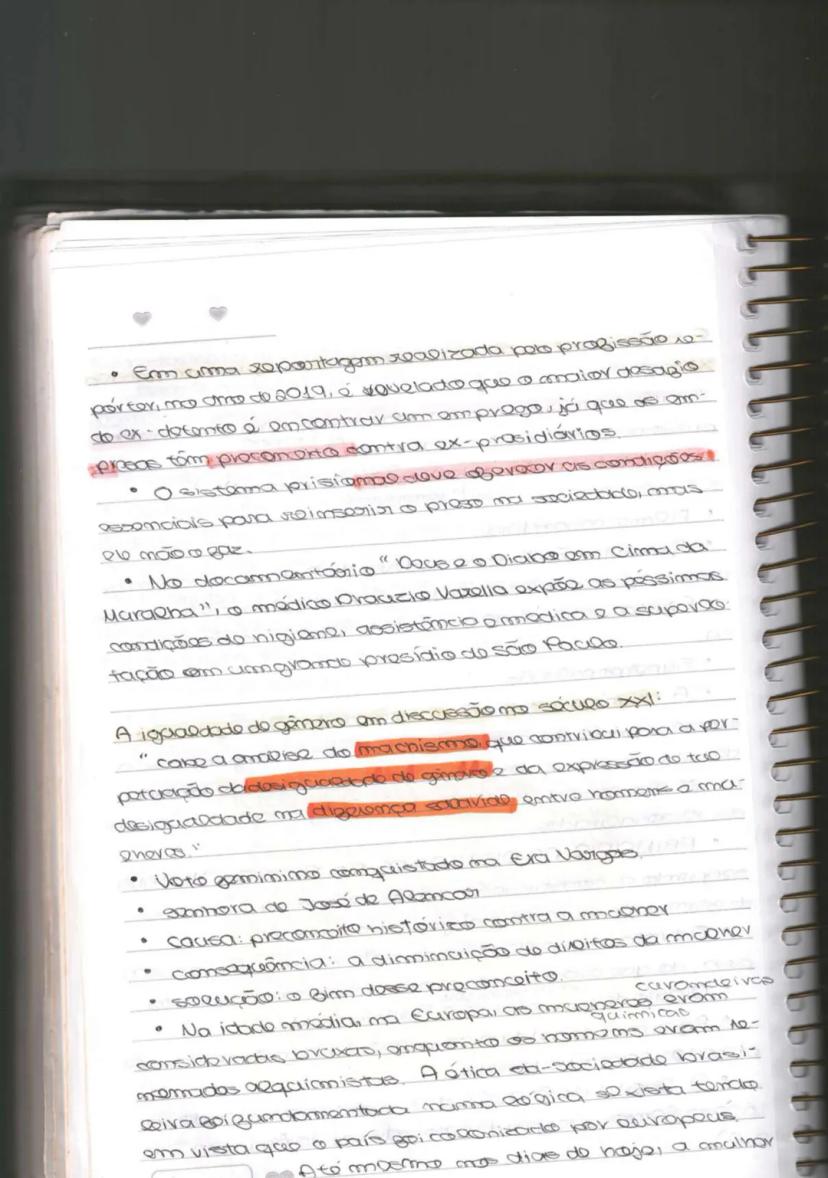 • Em uma reportagem realizada pelo profissão re-
pórter, no ano de 2019, é revelado que o maior desafio
do ex-detento é encontrar um emprego, já que as em-
presas têm preconceito contra ex-presidiários.
• O sistema prisional deve oferecer as condições
essenciais para reinserir o preso na sociedade, mas
ele não o faz.
• No documentário "Deus e o Diabo em Cima da
Muralha", o médico Drauzio Varella expõe as péssimas
condições de higiene, assistência médica e a superlo-
tação em um grande presídio de são Paulo.
A igualdade de gênero em discussão no século XXI:
"cabe a análise do machismo, que contribui para a per-
petuação da desigualdade de gênero e da expressão de tal
desigualdade na diferença salarial entre homens e mu-
lheres."
• Voto feminino conquistado na Era Vargas.
• senhora de José de Alencar
• causa: preconceito histórico contra a mulher
• consequência: a diminuição de direitos da mulher
• solução: o fim desse preconceito.
curandeiras
• Na idade média, na Europa, as mulheres eram
químicas
consideradas bruxas, enquanto os homens eram re-
nomados alquimistas. A ótica da sociedade brasi-
leira foi fundamentada numa lógica sexista tendo
em vista que o país foi colonizado por europeus.
Até mesmo nos dias de hoje, a mulher